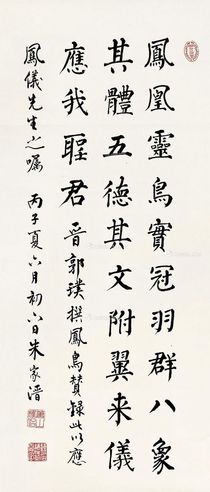 鳳凰靈鳥實冠羽群八象
其體五德其文附翼来儀
應我聖君晉郭璞撰鳳鳥赞錄此以應
鳳儀先生之嘱丙子夏六月初六日朱家溍